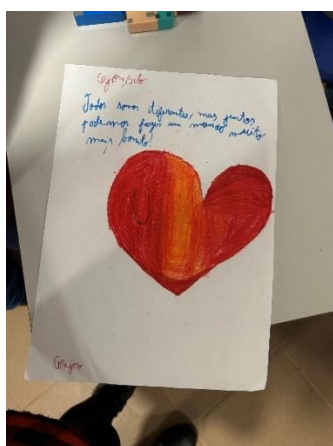 Todos somos diferentes, mas juntos
podemos fazer um mundo muito
mais bonito